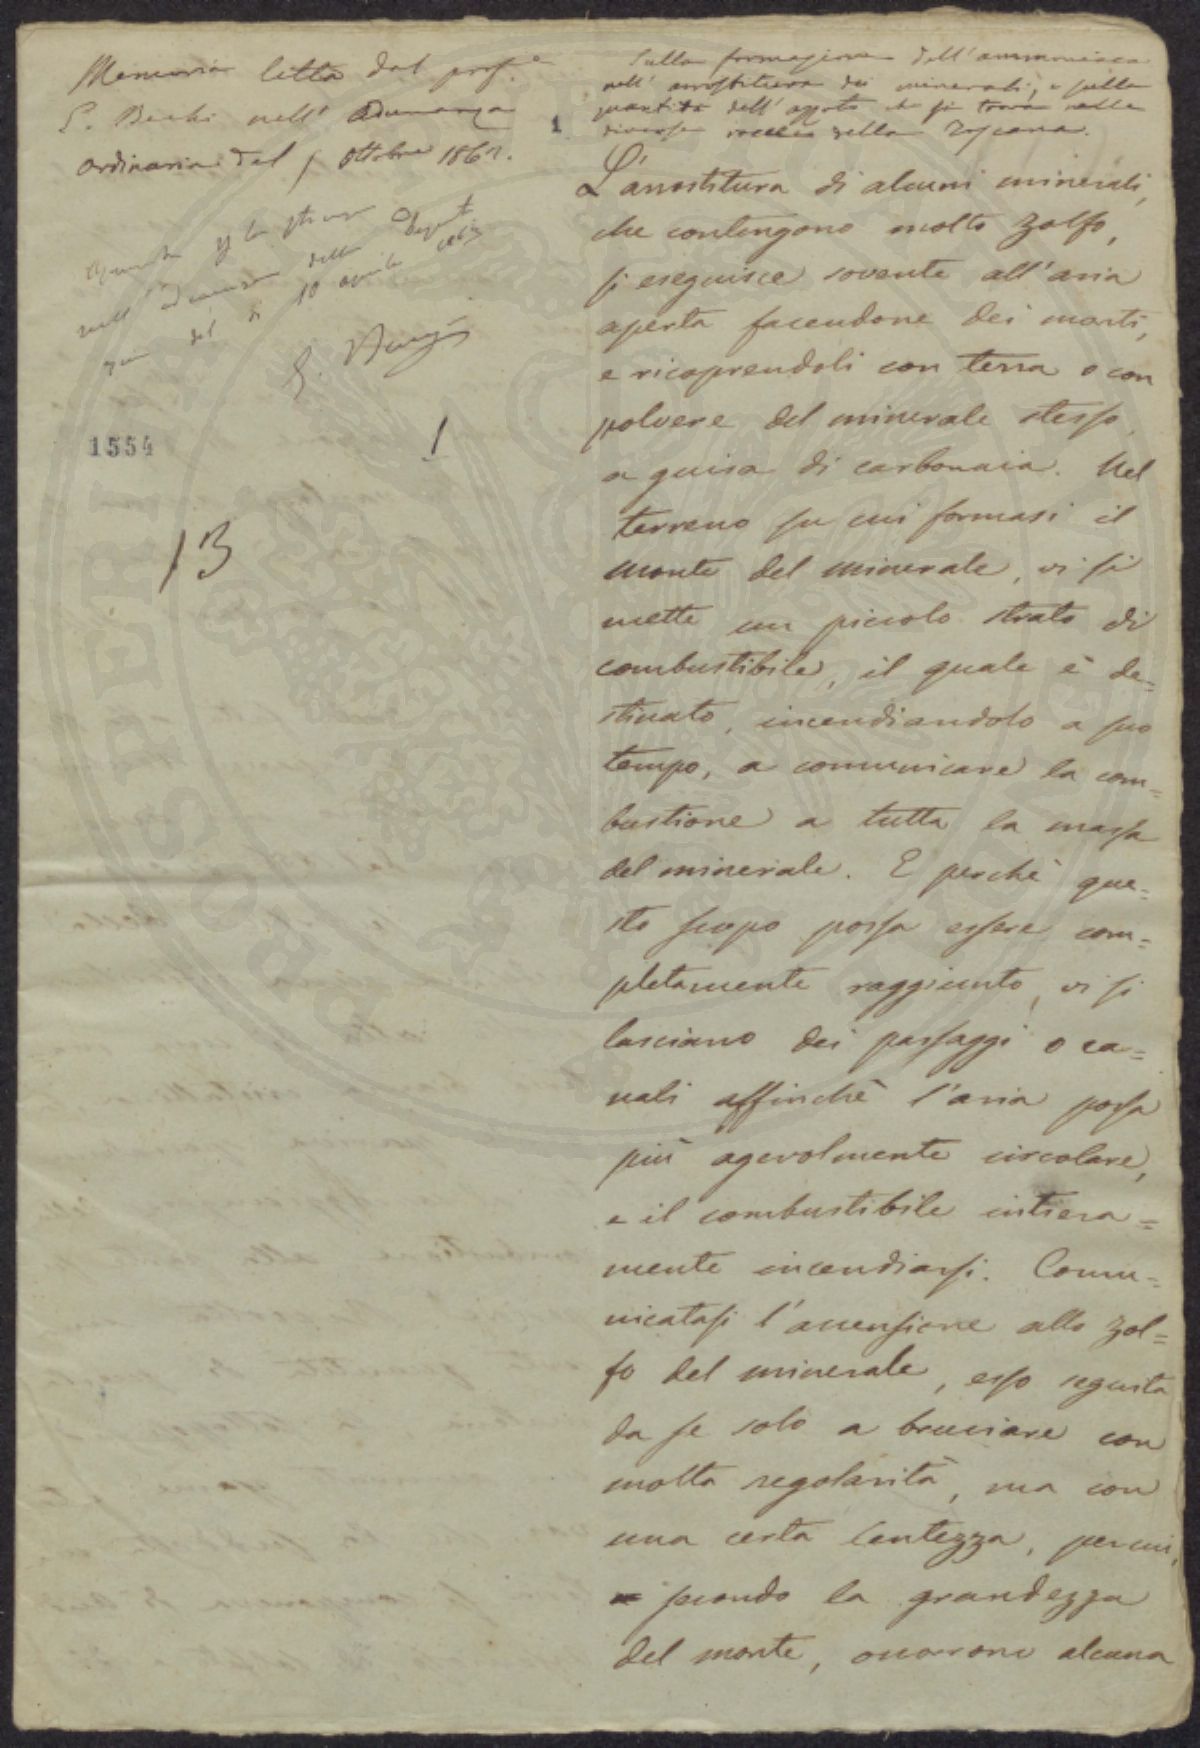 Memoria letta dal prof.e
E. Bechi nell' Adunanza
ordinaria del 5 Ottobre 1862.
nell' Adunanza della
del dì 10 aprile
1554
1
13
1
Sulla formazione dell'ammoniaca
nell' arrostitura dei minerali, e sulla
quantità dell' azoto che si trova nelle
diverse roccie della Toscana.
L'arrostitura di alcuni minerali,
che contengono molto zolfo,
si eseguisce sovente all'aria
aperta facendone dei monti,
e ricoprendoli con terra o con
polvere del minerale stesso,
a guisa di carbonaia. Nel
terreno su cui formasi il
monte del minerale, vi si
mette un piccolo strato di
combustibile, il quale è de=
stinato, incendiandolo a suo
tempo, a comunicare la com=
bustione a tutta la massa
del minerale. E perchè que=
sto scopo possa essere com=
pletamente raggiunto, vi si
lasciano dei passaggi o ca=
nali affinchè l'aria possa
più agevolmente circolare,
e il combustibile intiera=
mente incendiarsi. Comu=
nicatasi l'accensione allo zol=
fo del minerale, esso seguita
da se solo a bruciare con
molta regolarità, ma con
una certa lentezza, per cui,
secondo la grandezza
del monte, occorrono alcuna